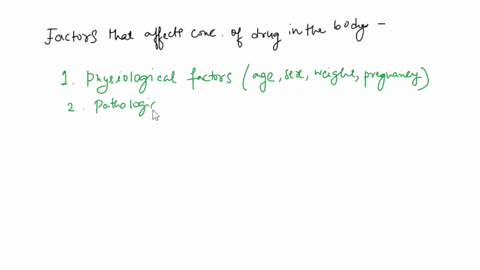 Factors that affects conc. of drug in the body -
1. Physiological factors (age, sex, weight, pregnancy)
2. Pathologic